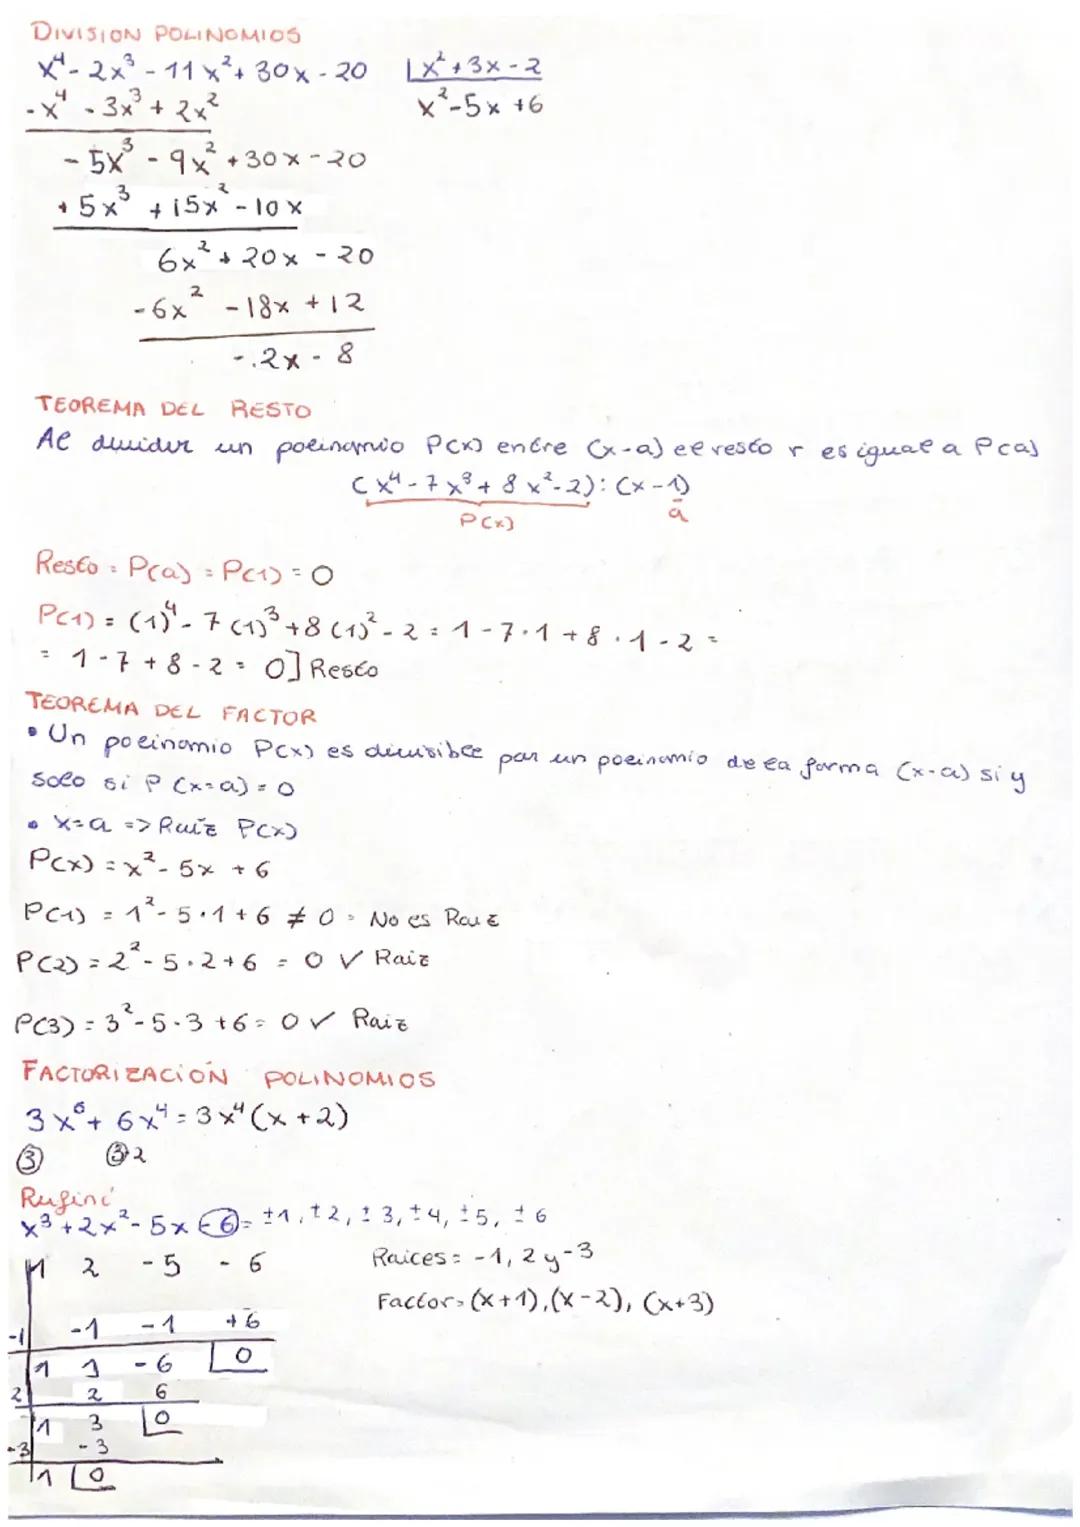 DIVISION POLINOMIOS
x⁴ - 2x³ - 11x² + 30x - 20 | x² + 3x - 2
-x⁴ - 3x³ + 2x² x² - 5x + 6
- 5x³ - 9x² + 30x - 20
+ 5x³ + 15x² - 10x
6x² + 20x - 20
-6x² - 18x + 12
-.2x - 8
TEOREMA DEL RESTO
Al dividir un polinomio P(x) entre (x-a) el resto r es igual a P(a)
(x⁴ - 7x³ + 8x² - 2) : (x - 1)
P(x) a
Resto = P(a) = P(1) = 0
P(1) = (1)⁴ - 7(1)³ + 8(1)² - 2 = 1 - 7·1 + 8·1 - 2 =
= 1 - 7 + 8 - 2 = 0] Resto
TEOREMA DEL FACTOR
• Un polinomio P(x) es divisible por un polinomio de la forma (x-a) si y
solo si P(x=a) = 0
• x=a => Raiz P(x)
P(x) = x² - 5x + 6
P(1) = 1² - 5·1 + 6 ≠ 0 = No es Raiz
P(2) = 2² - 5·2 + 6 = 0 ✓ Raiz
P(3) = 3² - 5·3 + 6 = 0 ✓ Raiz
FACTORIZACIÓN POLINOMIOS
3x⁵ + 6x⁴ = 3x⁴(x + 2)
③ ③·2
Rufini
x³ + 2x² - 5x - 6 = ±1, ±2, ±3, ±4, ±5, ±6
1 2 -5 -6 Raices = -1, 2 y -3
Factor = (x+1), (x-2), (x+3)
-1 -1 -1 +6
1 1 -6 0
2 2 6
1 3 0
-3 -3
1 0